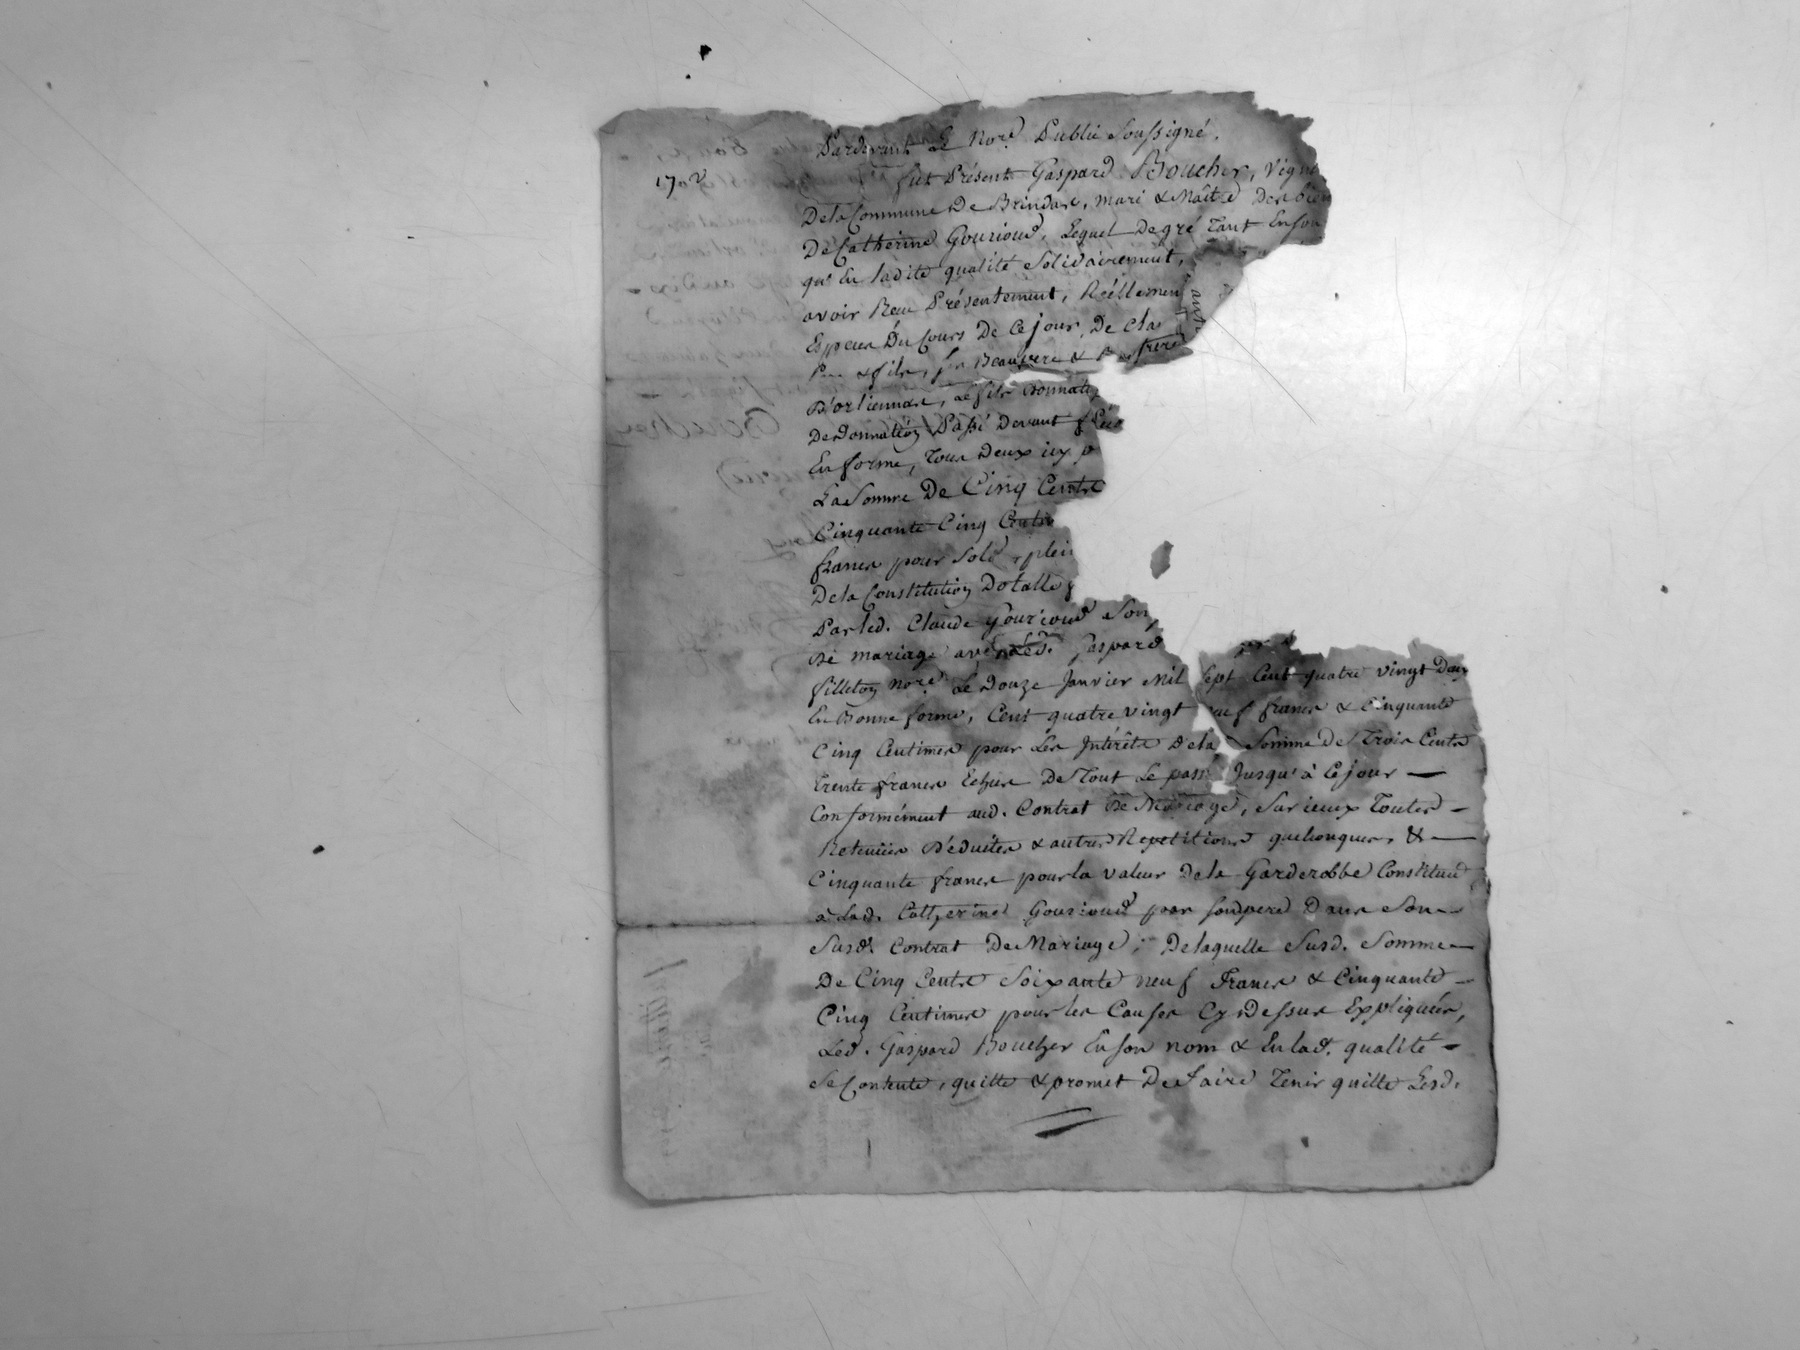 Pardevant Le Nore. Public Soussigné.
fut Présent Gaspard Boucher, vign
De la Commune De Brindas, mari & Maître Des bien
De Catherine Gourioud, Lequel De gré Tant En son
qu'En ladite qualité Solidairement,
avoir Reçu Présentement, Réellemen
Especes Du Cours De Ce jour, De Cla
Pere & fils, Beaupere & frere
D'orliennas, Le fils Donnat
De Donnation Passé Devant
En forme, Tous Deux icy p
La Somme De Cinq Cents
Cinquante Cinq Centi
francs pour Solde plei
De la Constitution Dotalle
Par led. Claude Gourioud Son
De mariage avec Led. Gaspard
filleton Nore. Le Douze Janvier Mil Sept Cent quatre vingt Douz
En Bonne forme, Cent quatre vingt euf francs & Cinquante
Cinq Centimes pour Les Intérêts De la Somme De Trois Cents
Trente francs Echus De Tout Le passé Jusqu'à Ce jour —
Conformément aud. Contrat De Mariage, Sur iceux Toutes —
Retenues Déduites & autres Repetitions quelconques, & —
Cinquante francs pour la valeur De la Garderobbe Constituée
à Lad. Catherine Gourioud par son pere Dans Son —
Susd. Contrat De Mariage; De laquelle Susd. Somme —
De Cinq Cents Soixante neuf Francs & Cinquante —
Cinq Centimes pour les Causes Cy Dessus Expliquées,
Led. Gaspard Boucher En son nom & En lad. qualité —
Se Contente, quitte & promet De faire Tenir quitte Lesd.